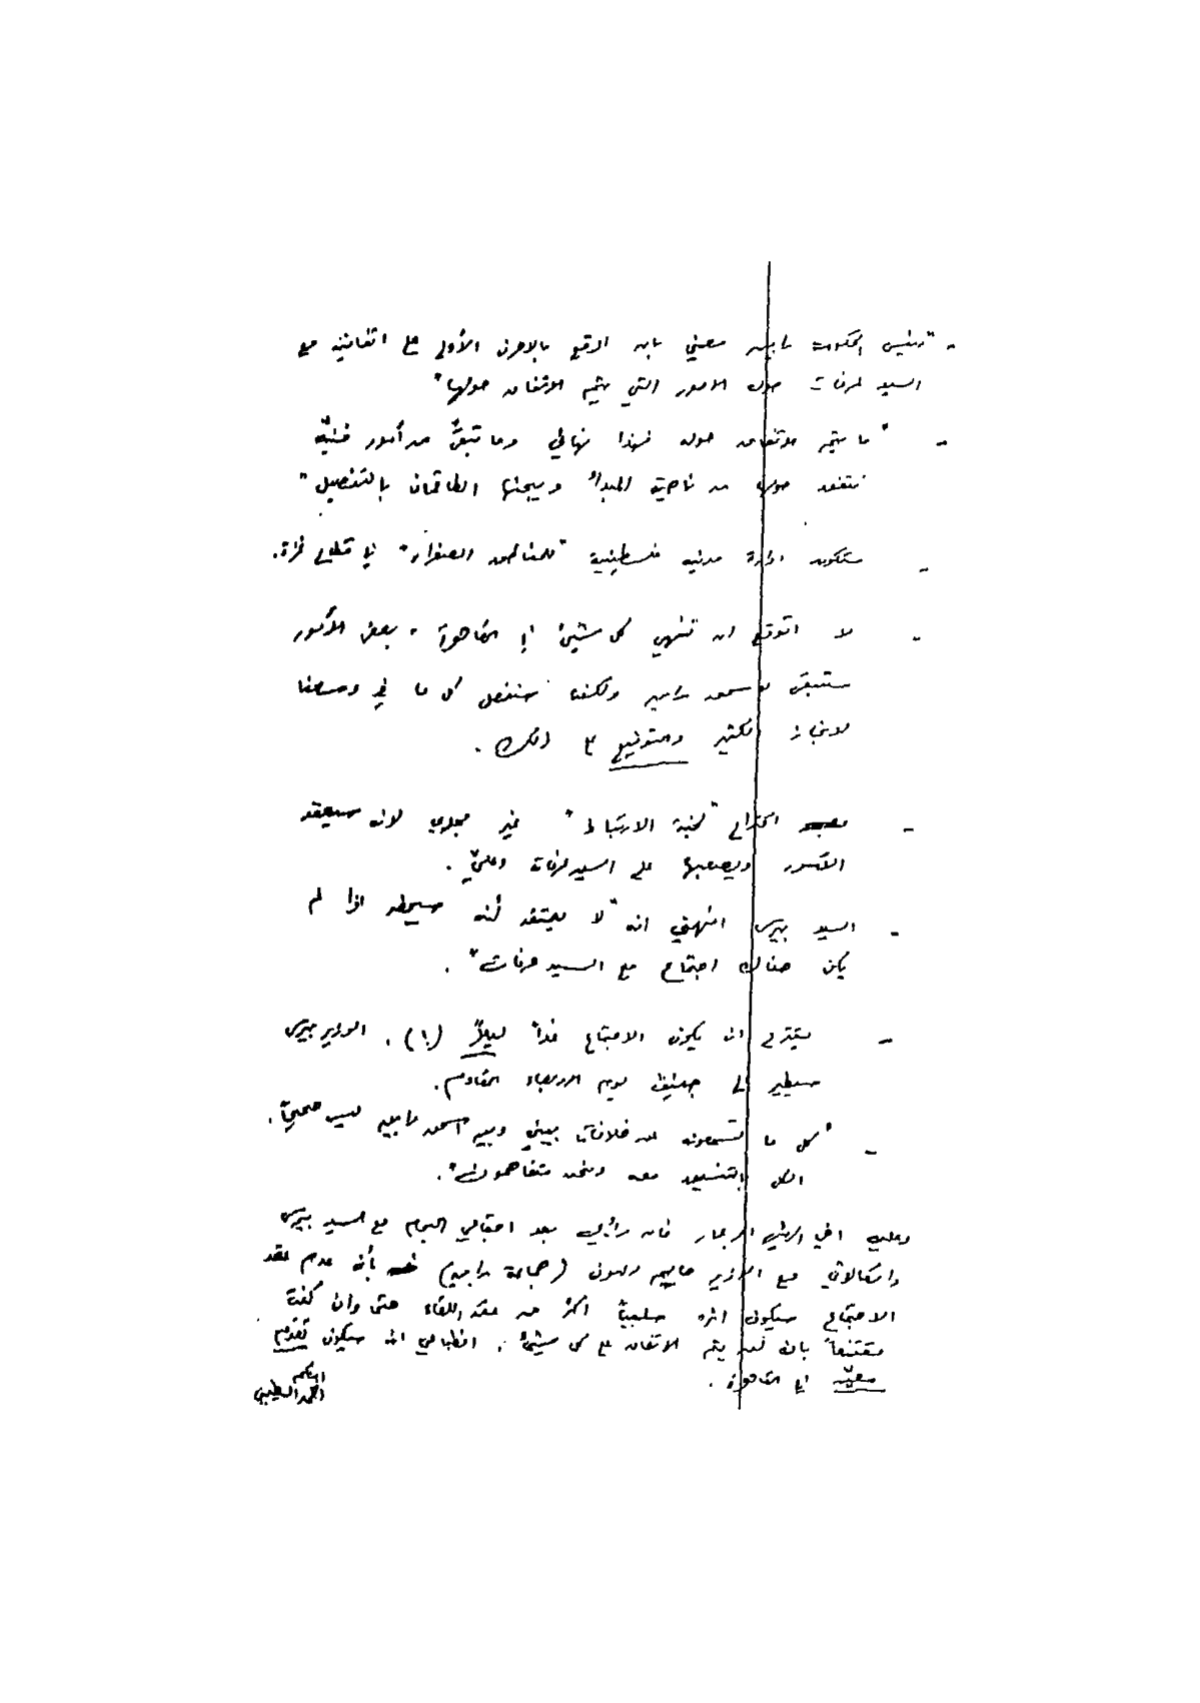 - "رئيس الحكومة رابين معني بان اوقع بالاحرف الأولى على اتفاقية مع
السيد عرفات حول الامور التي يتم الاتفاق حولها"
- "ما يتم الاتفاق حوله فهذا نهائي وما تبقّى من أمور فنيّة
نتفق حولها من ناحية المبدأ ويبحثها الطاقمان بالتفصيل"
- ستكون ادارة مدنية فلسطينية "للمناطق الصفراء" في قطاع غزة.
- لا اتوقع ان تنتهي كل شيئ في القاهرة. بعض الأمور
ستبقى ولكننا سنفعل كل ما في وسعنا
لانجاز الكثير والتوقيع على ذلك.
- اقتراح "لجنة الارتباط" غير مجدي لانه سيعقد
الأمور ويصعبها على السيد عرفات وعليّ.
- السيد بيرس افهمني انه "لا يعتقد أنه سيحضر اذا لم
يكن هناك اجتماع مع السيد عرفات".
- يقترح ان يكون الاجتماع غداً ليلاً (!). الوزير بيرس
سيطير الى جنيف يوم الاربعاء القادم.
- "كل ما تسمعونه من خلافات بيني وبين اسحق رابين ليس صحيحاً.
الكل بالتنسيق معه ونحن متفاهمون".
وعليه اخي الرئيس ابو عمار فان رأيي بعد اجتماعي اليوم مع السيد بيرس
واتصالاتي مع الوزير حاييم رامون (جماعة رابين) بأن عدم عقد
الاجتماع سيكون اثره سلبياً أكثر من عقد اللقاء حتى وان كنت
مقتنعاً بان لن يتم الاتفاق على كل شيئ. انطباعي انه سيكون تقدم
معيّن في القاهرة.
ابنكم
احمد الطيبي